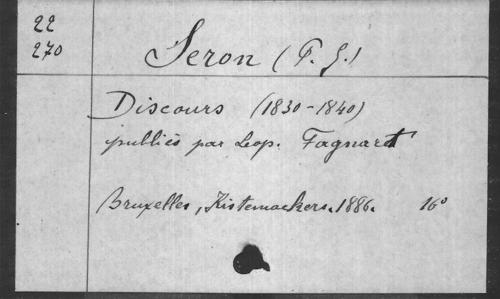 22
270
Seron (P. J.)
Discours (1830-1840)
publiés par Leop. Fagnart
Bruxelles, Kistemackers. 1886. 16°